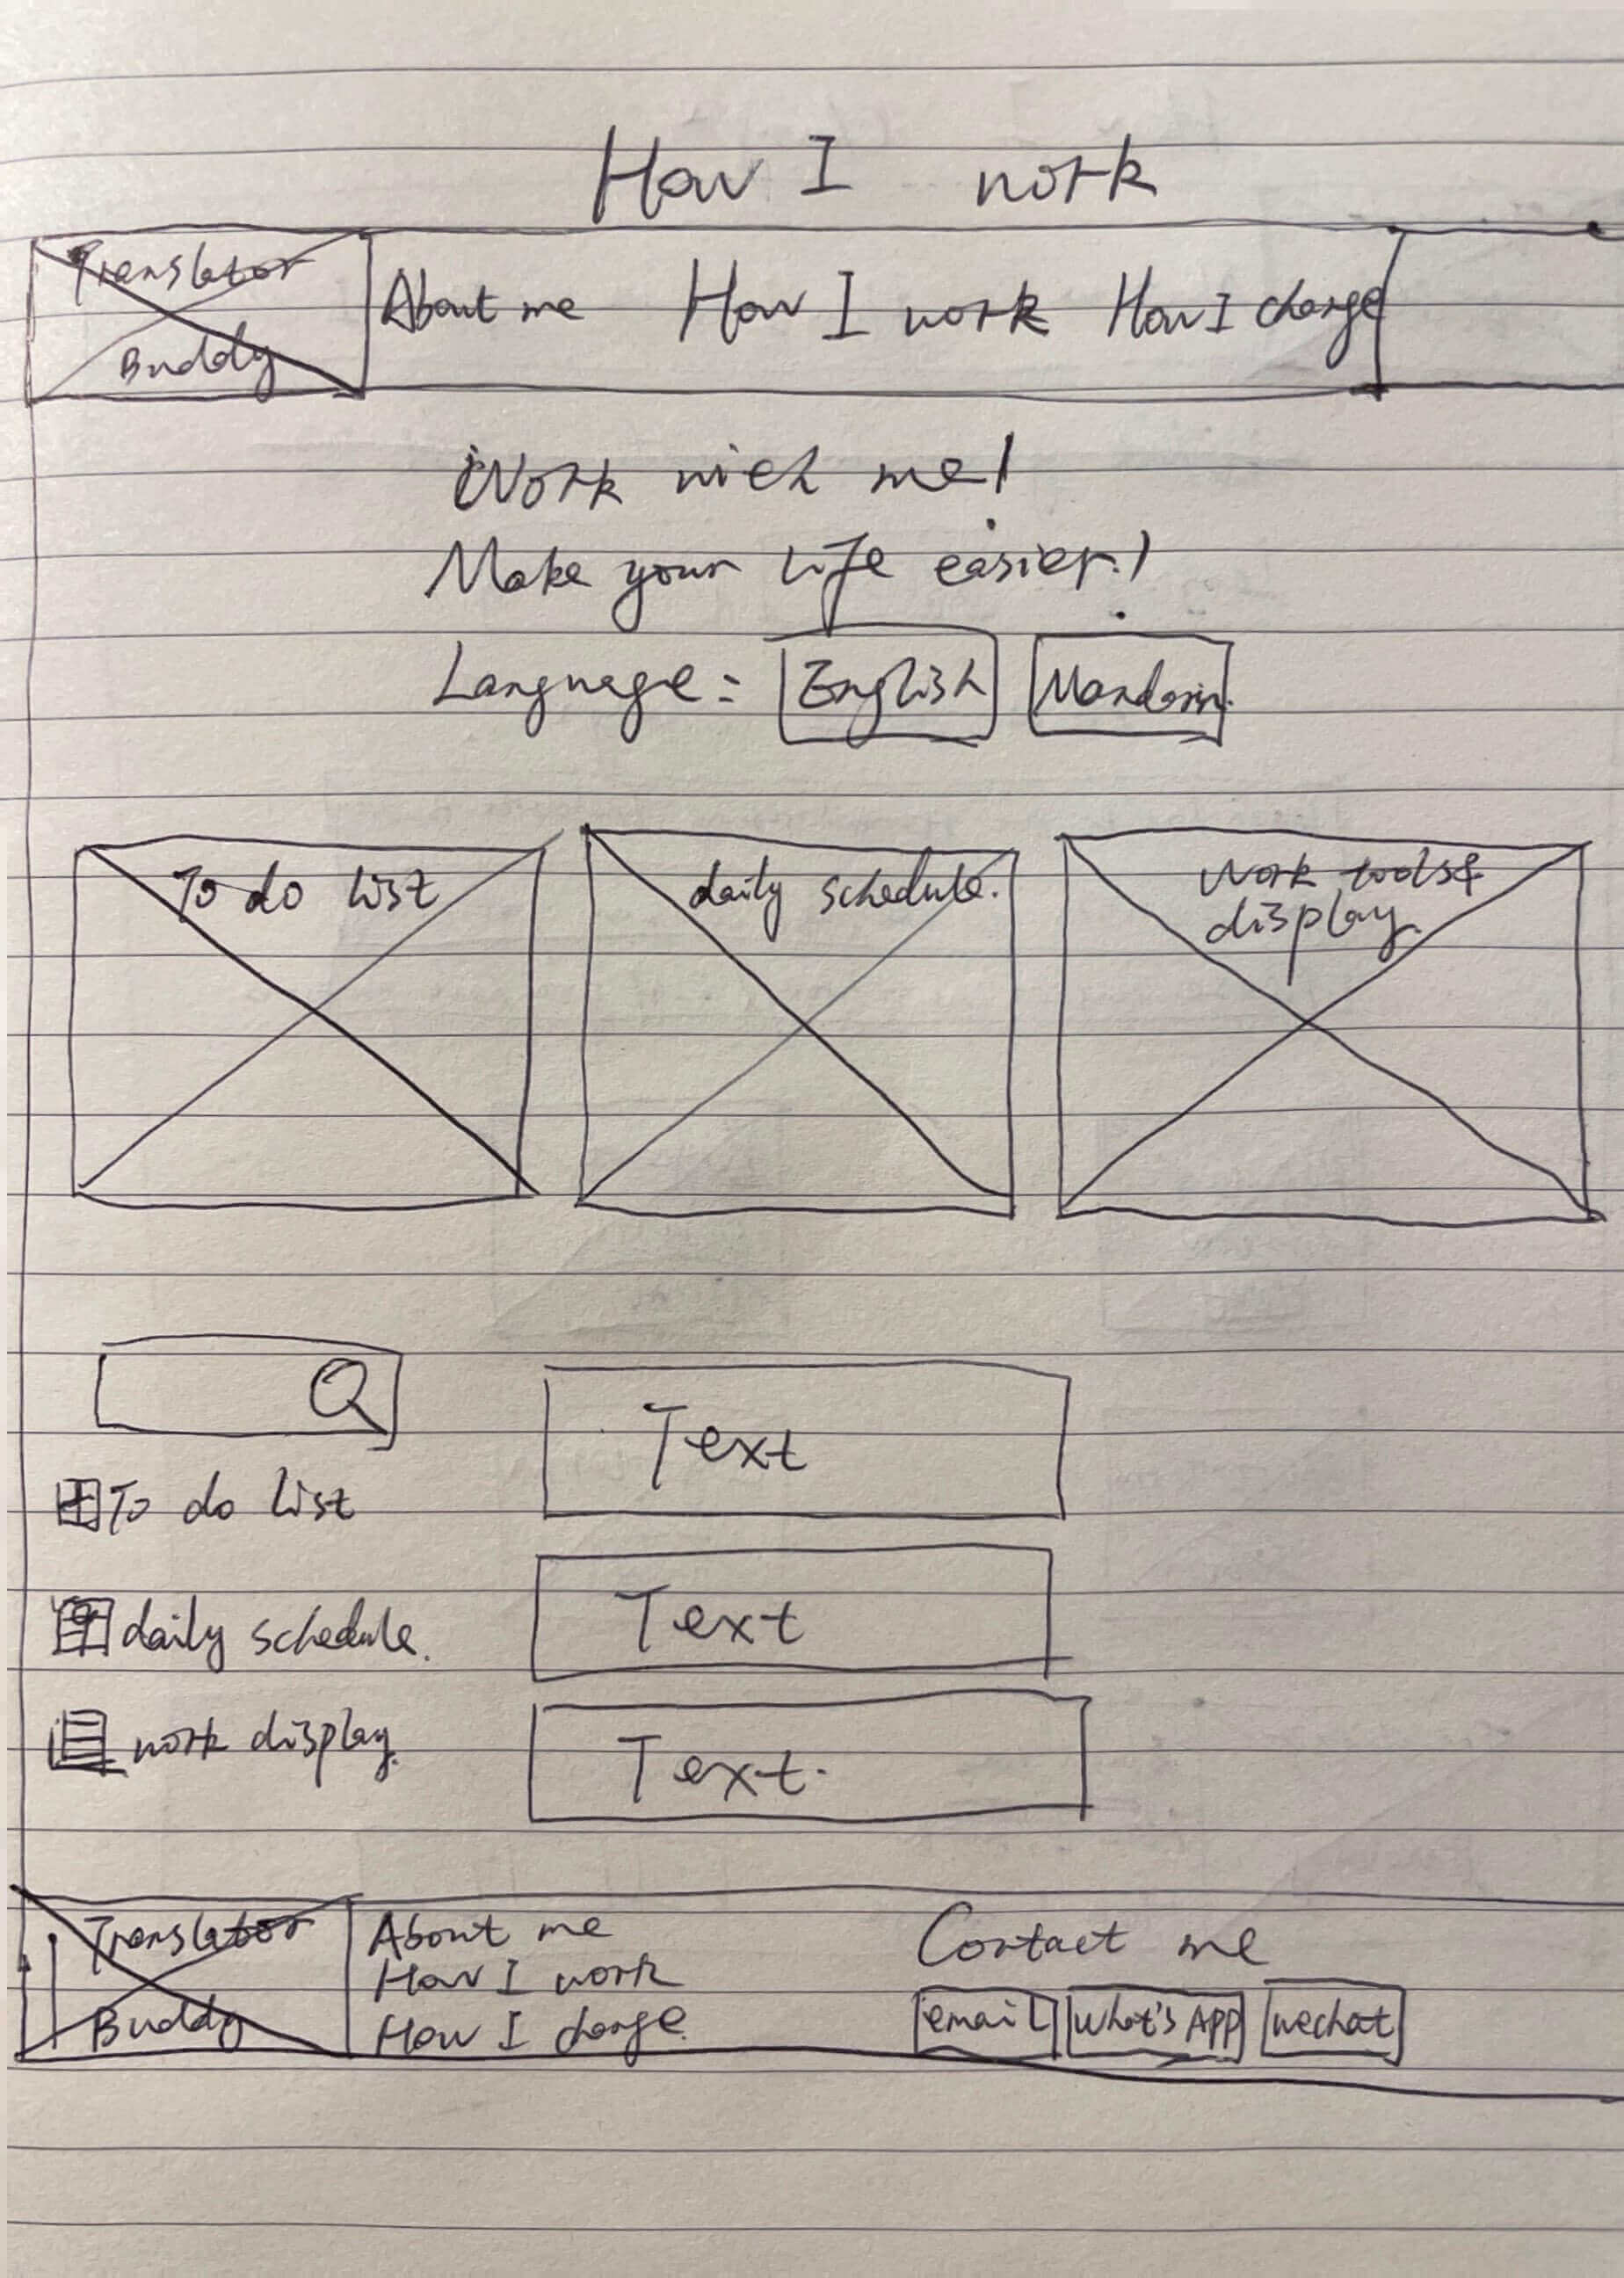 How I work
Translator
Buddy
About me How I work How I charge
Work with me!
Make your life easier!
Language: English Mandarin
To do list
daily schedule.
Work tools &
display.
Text
To do list
Text
daily schedule.
Text.
work display.
Translator
Buddy
About me
How I work
How I charge.
Contact me
email What's App wechat